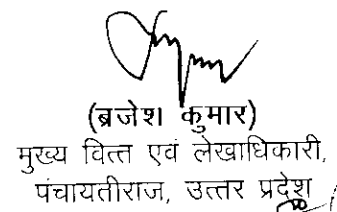 (ब्रजेश कुमार)
मुख्य वित्त एवं लेखाधिकारी,
पंचायतीराज, उत्तर प्रदेश